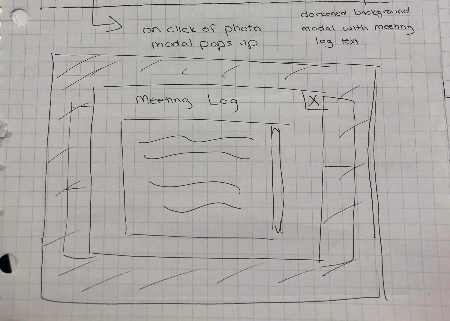 on click of photo
modal pops up
darkened background
modal with meeting
log text
Meeting Log
X